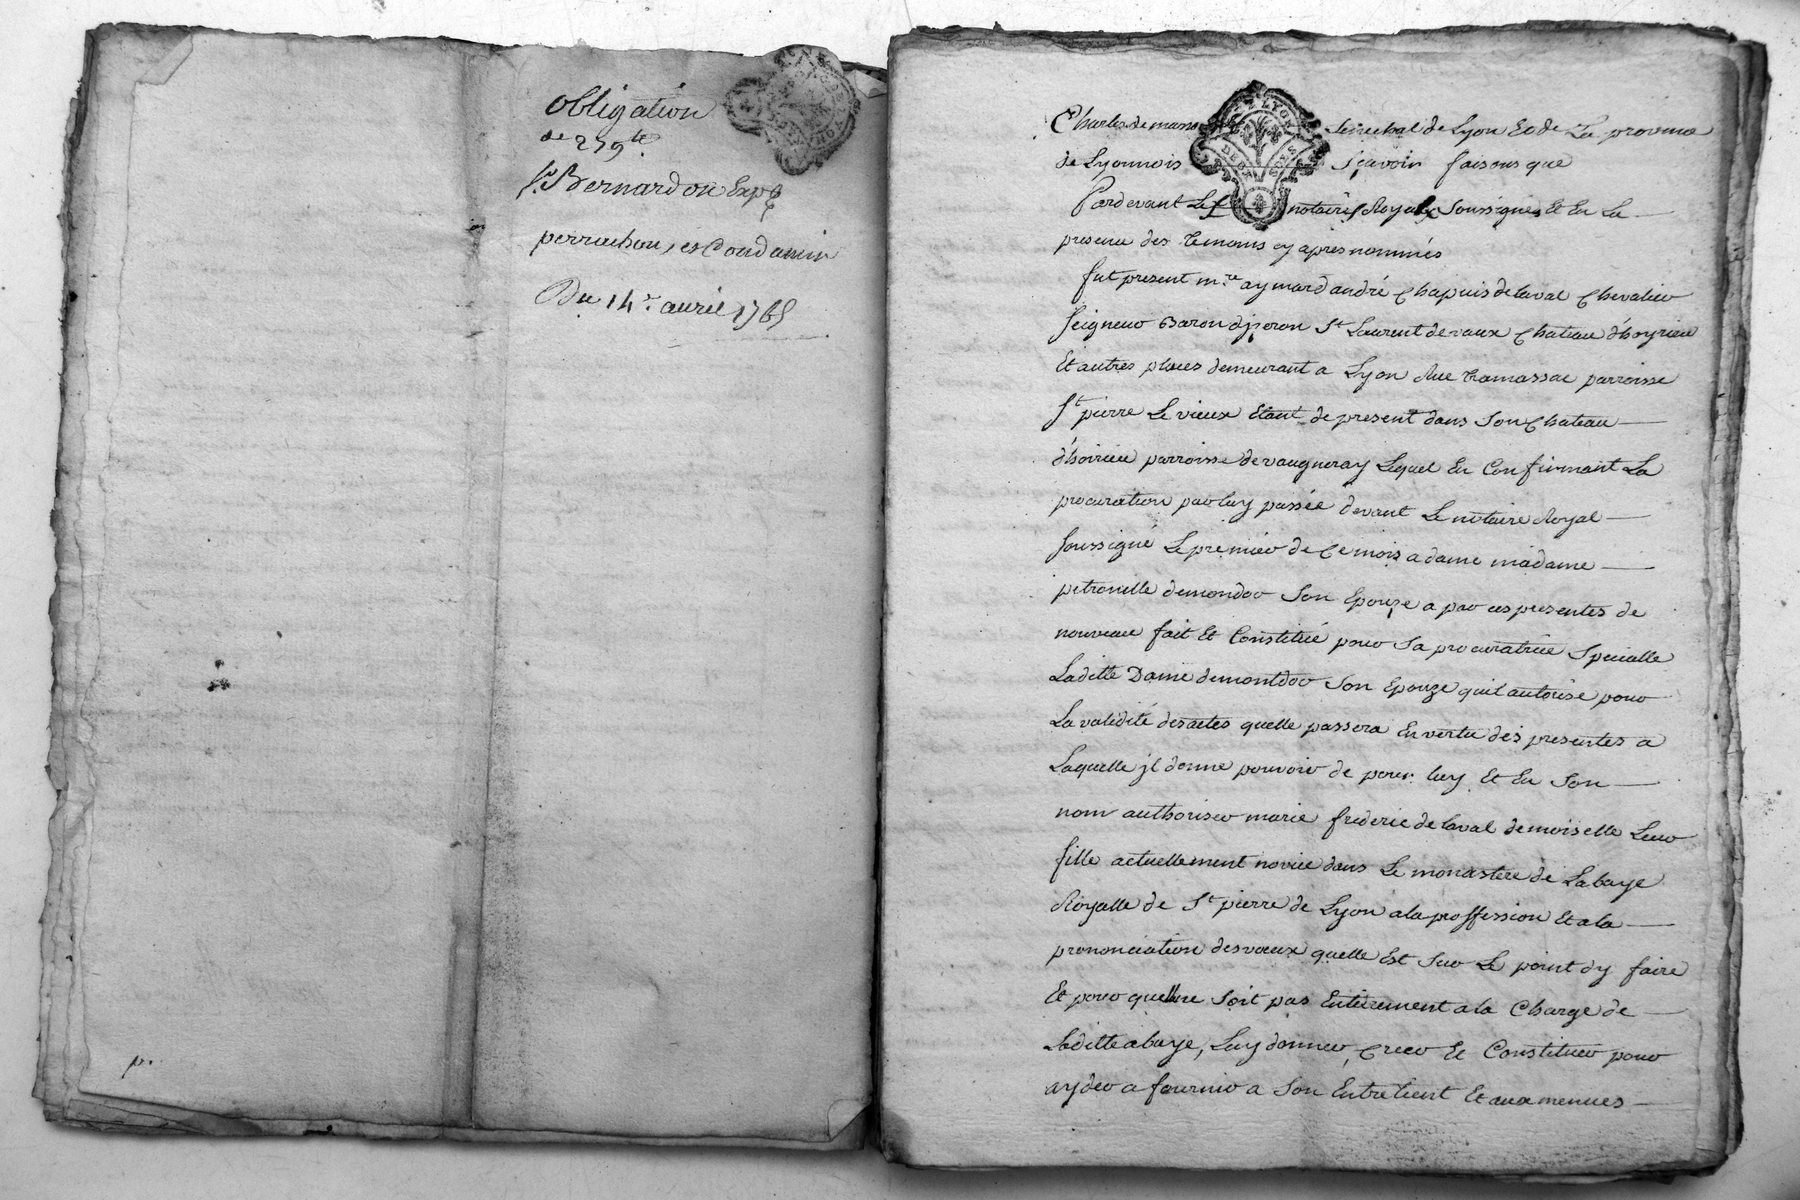 obligation
de 259 lt.
Sr Bernardon Exp
perrachon, et Condamin
Du 14e. avril 1765
p.
Charles de Senechal de Lyon Et de La province
de Lyonnois sçavoir faisons que
Pardevant Le notaire Royal Soussigné Et En La
presence des temoins cy apres nommés
fut present mre aymard andré Chapuis de laval Chevalier
seigneur Baron d'jzeron St Laurent de vaux Chateau d'hoyrieu
Et autres places demeurant a Lyon Rue tramassac parroisse
St pierre Le vieux Etant de present dans Son Chateau
d'hoirieu parroisse de vaugneray Lequel En Confirmant La
procuration par luy passée devant Le notaire Royal
soussigné Le premier de Ce mois a dame madame
petronille demondor Son Epouze a par ces presentes de
nouveau fait Et Constitué pour Sa procuratrice Specialle
Laditte Dame demontdor Son Epouze quil autorise pour
La validité des actes quelle passera En vertu des presentes a
Laquelle jl donne pouvoir de pour luy Et En Son
nom authoriser marie frederic de laval demoiselle Leur
fille actuellement novice dans Le monastere de Labaye
Royalle de St pierre de Lyon a la proffession Et a la
prononciation des vœux quelle Est Sur Le point dy faire
Et pour quelle ne Soit pas Entierement a la Charge de
Laditte abaye, Luy donner, Creer Et Constituer pour
ayder a fournir a Son Entretient Et aux menues